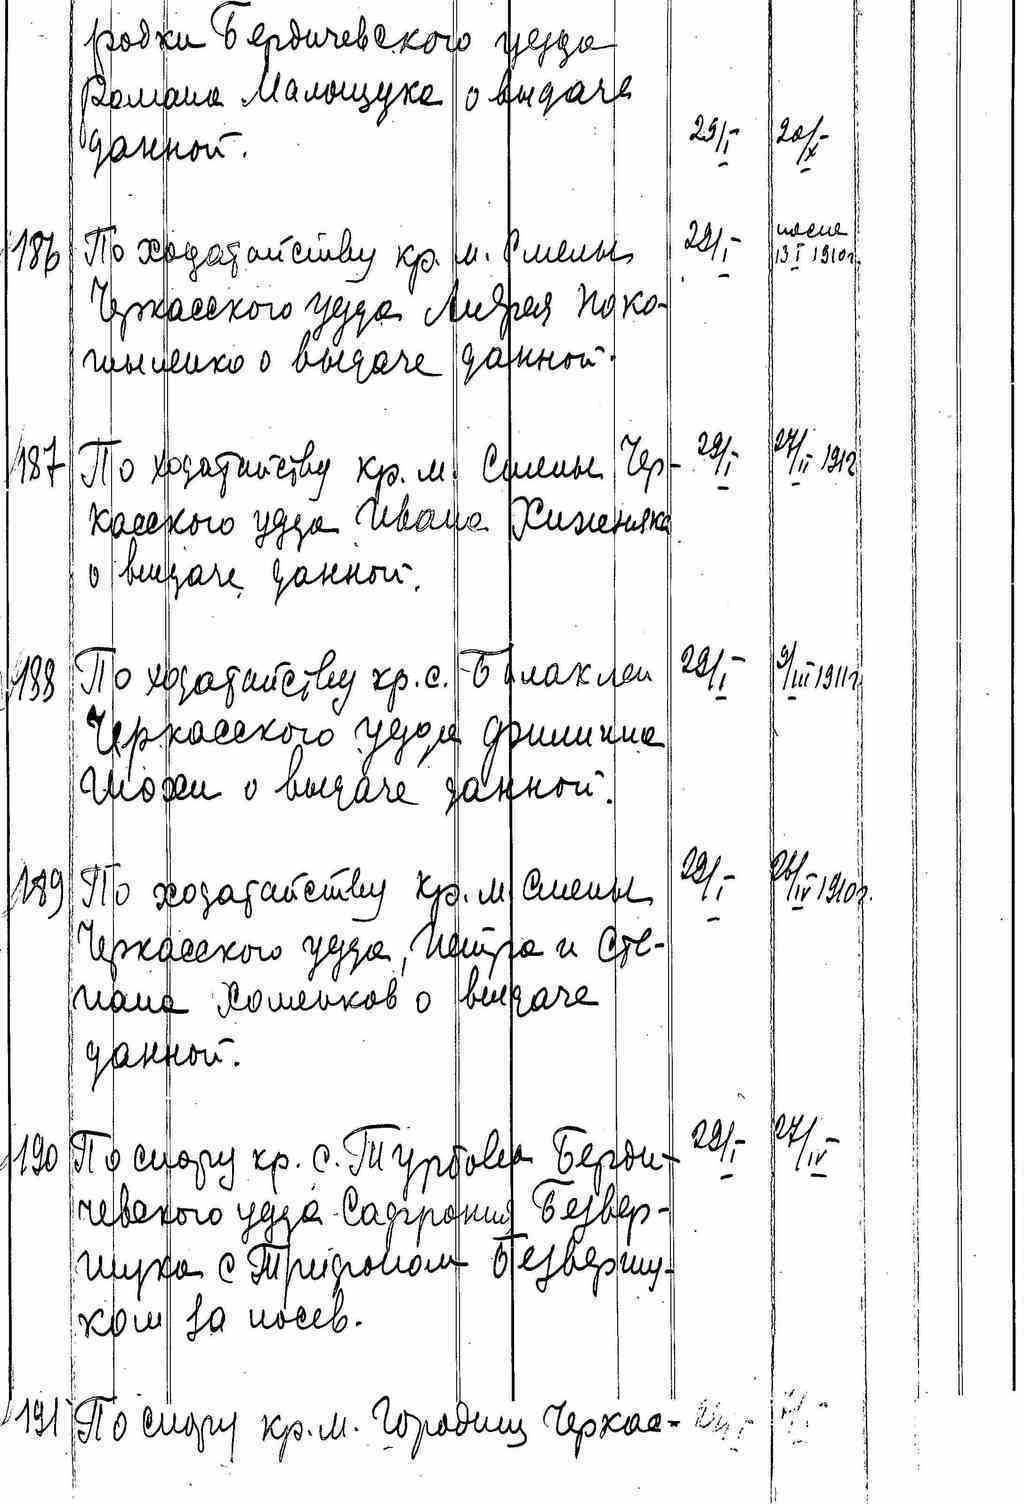 родки Бердичевского уезда
Романа Малощука о выдаче
данной. 29/I 20/X
186 По ходатайству кр. м. Смелы 29/I после 13 I 1910 г.
Черкасского уезда Андрея Поко-
тыленко о выдаче данной.
187 По ходатайству кр. м. Смелы Чер- 29/I 27/II 1912
касского уезда Ивана Хиженяка
о выдаче данной.
188 По ходатайству кр. с. Балаклеи 29/I 9/III 1911 г.
Черкасского уезда Филиппа
Шохи о выдаче данной.
189 По ходатайству кр. м. Смелы 29/I /IV 1910 г.
Черкасского уезда, Петра и Сте-
пана Хоменков о выдаче
данной.
190 По спору кр. с. Турбовка Берди- 29/I 27/IV
чевского уезда Сафрония Безвер-
шука с Трифоном Безвершу-
ком за посев.
191 По спору кр. м. Городищ Черкас-